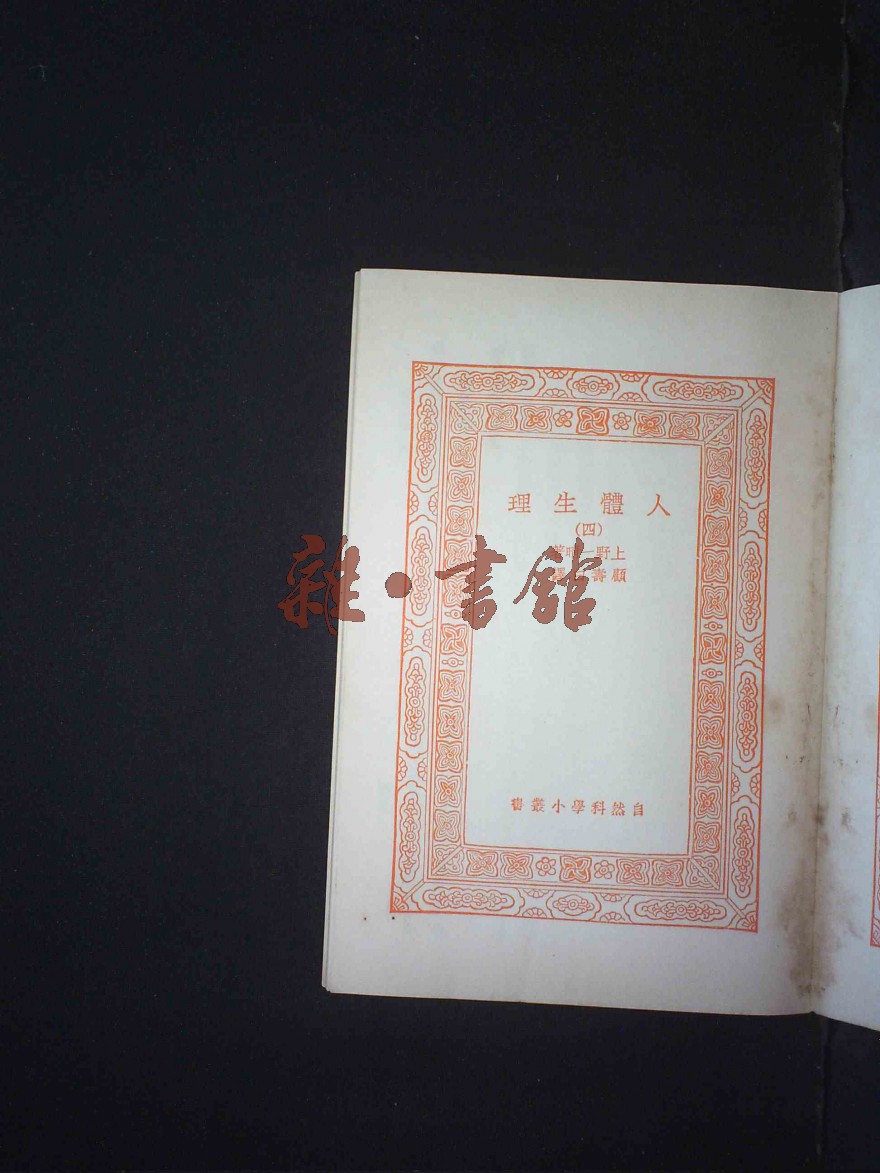 人體生理
(四)
上野一晴著
顧壽白譯
自然科學小叢書
雜·書館